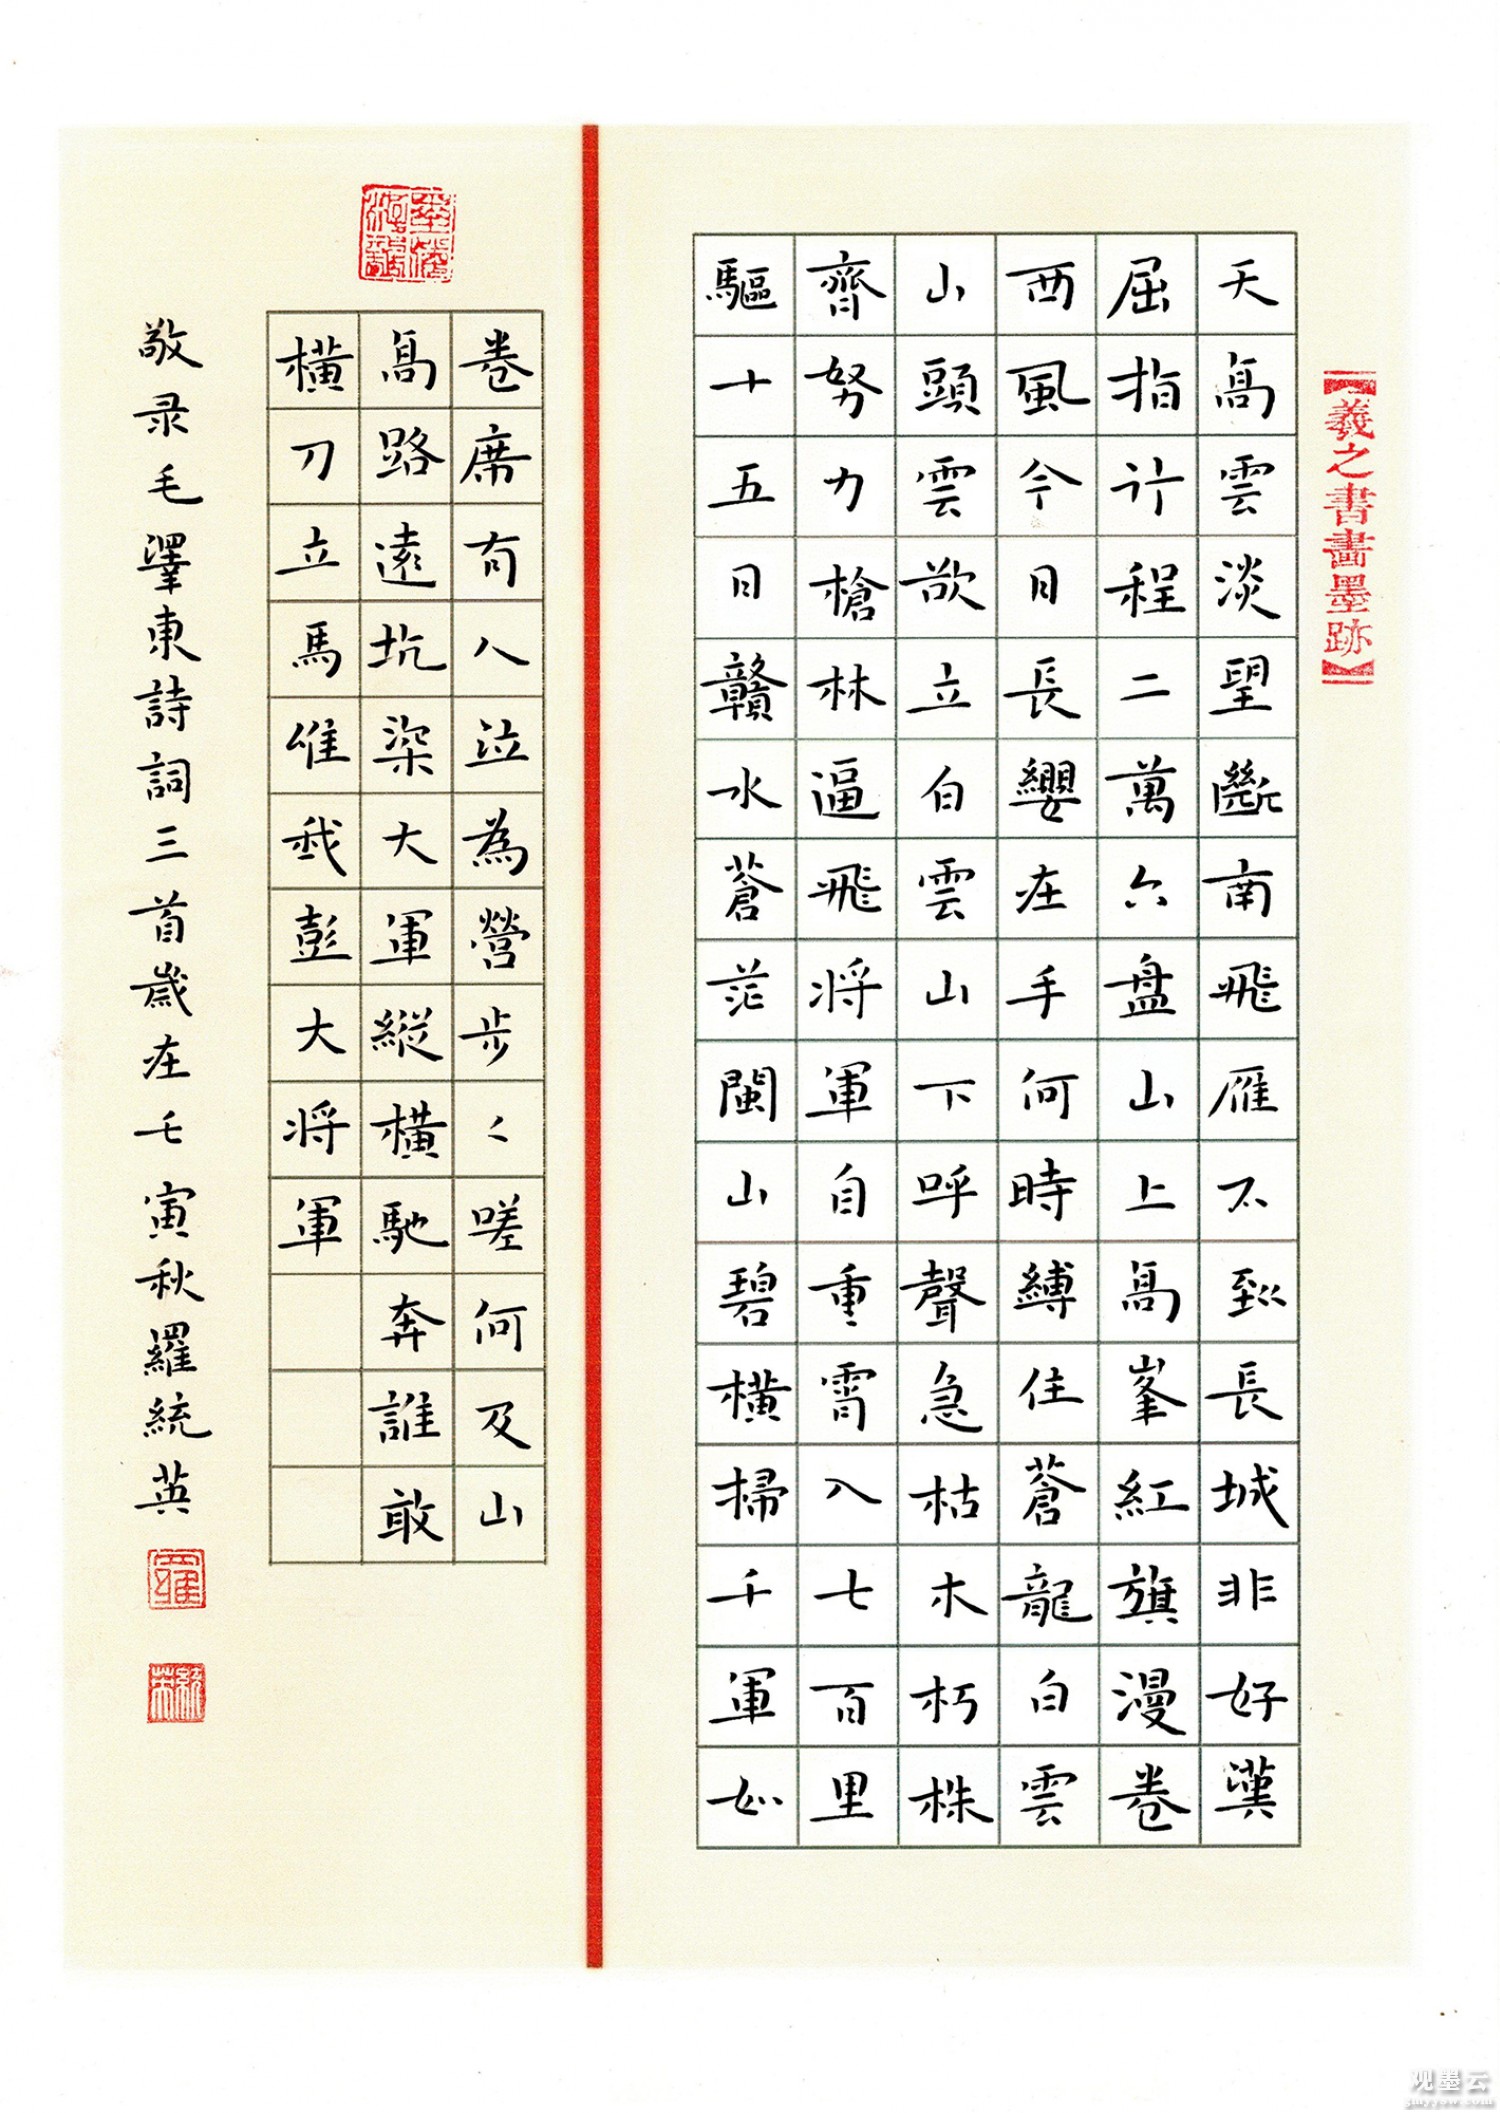 【羲之書畵墨跡】
天高雲淡望斷南飛雁不到長城非好漢
屈指行程二萬六盘山上高峯紅旗漫卷
西風今日長纓在手何時縛住蒼龍白雲
山頭雲欲立白雲山下呼聲急枯木朽株
齊努力槍林逼飛将軍自重霄入七百里
驅十五日贛水蒼茫閩山碧横掃千軍如
卷席有人泣為營步〻嗟何及山
高路遠坑深大軍縱横馳奔誰敢
横刀立馬唯我彭大将軍
敬录毛澤東詩詞三首歲在壬寅秋羅統英
观墨云
gmyyow.com